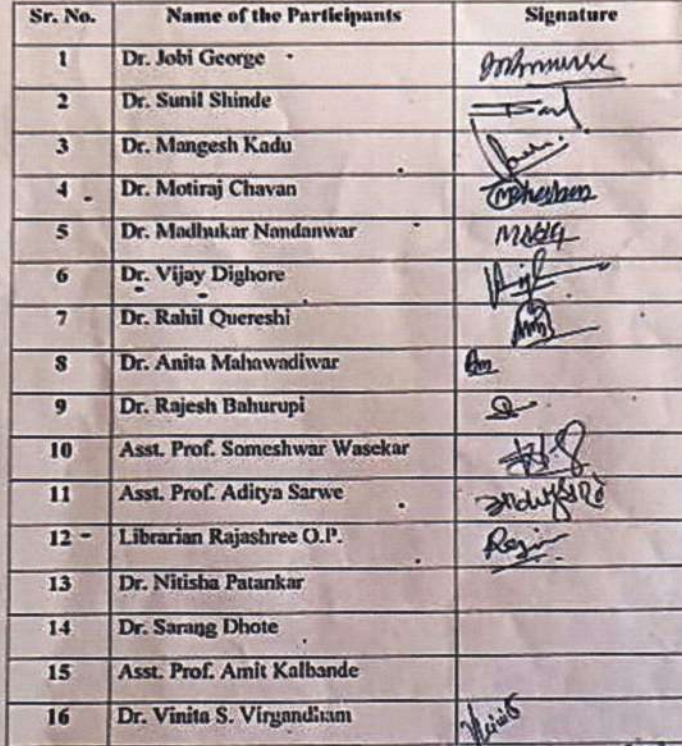 Sr. No. Name of the Participants Signature
1 Dr. Jobi George
2 Dr. Sunil Shinde
3 Dr. Mangesh Kadu
4 Dr. Motiraj Chavan
5 Dr. Madhukar Nandanwar
6 Dr. Vijay Dighore
7 Dr. Rahil Quereshi
8 Dr. Anita Mahawadiwar
9 Dr. Rajesh Bahurupi
10 Asst. Prof. Someshwar Wasekar
11 Asst. Prof. Aditya Sarwe
12 Librarian Rajashree O.P.
13 Dr. Nitisha Patankar
14 Dr. Sarang Dhote
15 Asst. Prof. Amit Kalbande
16 Dr. Vinita S. Virgandham